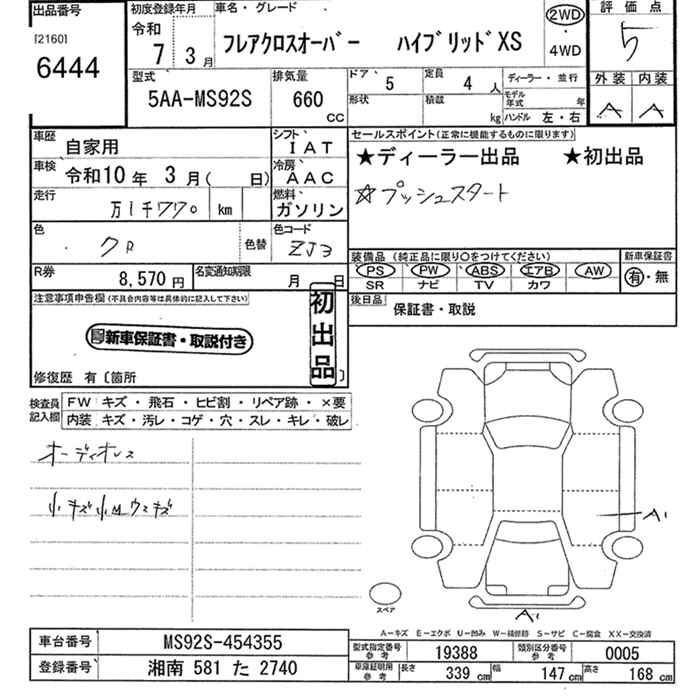 出品番号
[2160]
6444
初度登録年月
令和
7年 3月
車名・グレード
フレアクロスオーバー ハイブリッドXS
2WD
・
4WD
評価点
5
外装 内装
A A
型式
5AA-MS92S
排気量
660
CC
ドア 5
定員 4 人
形状
積載 kg
ディーラー・並行
モデル年式 年
ハンドル 左・右
車歴 自家用
シフト IAT
車検 令和10年 3月( 日)
冷房 AAC
走行 万1千770 km
燃料 ガソリン
色 クロ
色替
色コード ZJ3
R券 8,570円
名変通知期限 月 日
セールスポイント(正常に機能するものに限ります)
★ディーラー出品 ★初出品
☆プッシュスタート
装備品(純正品に限り○をつけてください)
PS PW ABS エアB AW
SR ナビ TV カワ
新車保証書
有・無
後日品 保証書・取説
注意事項申告欄(不具合内容等は具体的に記入して下さい)
新車保証書・取説付き
初出品
修復歴 有〔箇所 〕
検査員記入欄
FW キズ・飛石・ヒビ割・リペア跡・×要
内装 キズ・汚レ・コゲ・穴・スレ・キレ・破レ
オーディオレス
小キズ小凹ウスキズ
A1
A1
スペア
A-キズ E-エクボ U-凹み W-補修跡 S-サビ C-腐食 XX-交換済
車台番号 MS92S-454355
登録番号 湘南 581 た 2740
型式指定番号参考 19388
類別区分番号参考 0005
車庫証明用参考 長さ 339 cm 幅 147 cm 高さ 168 cm